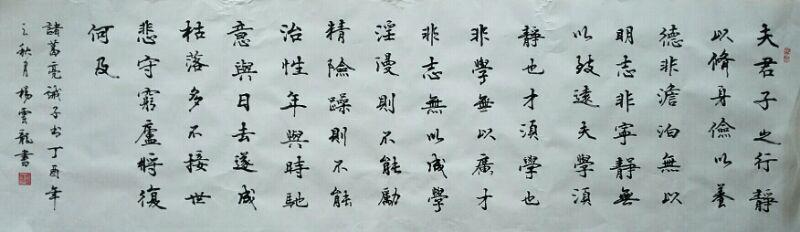 夫君子之行靜
以脩身儉以養
德非澹泊無以
明志非寧靜無
以致遠夫學須
靜也才須學也
非學無以廣才
非志無以成學
淫漫則不能勵
精險躁則不能
治性年與時馳
意與日去遂成
枯落多不接世
悲守窮廬將復
何及
諸葛亮誡子書丁酉年
之秋月楊雲龍書